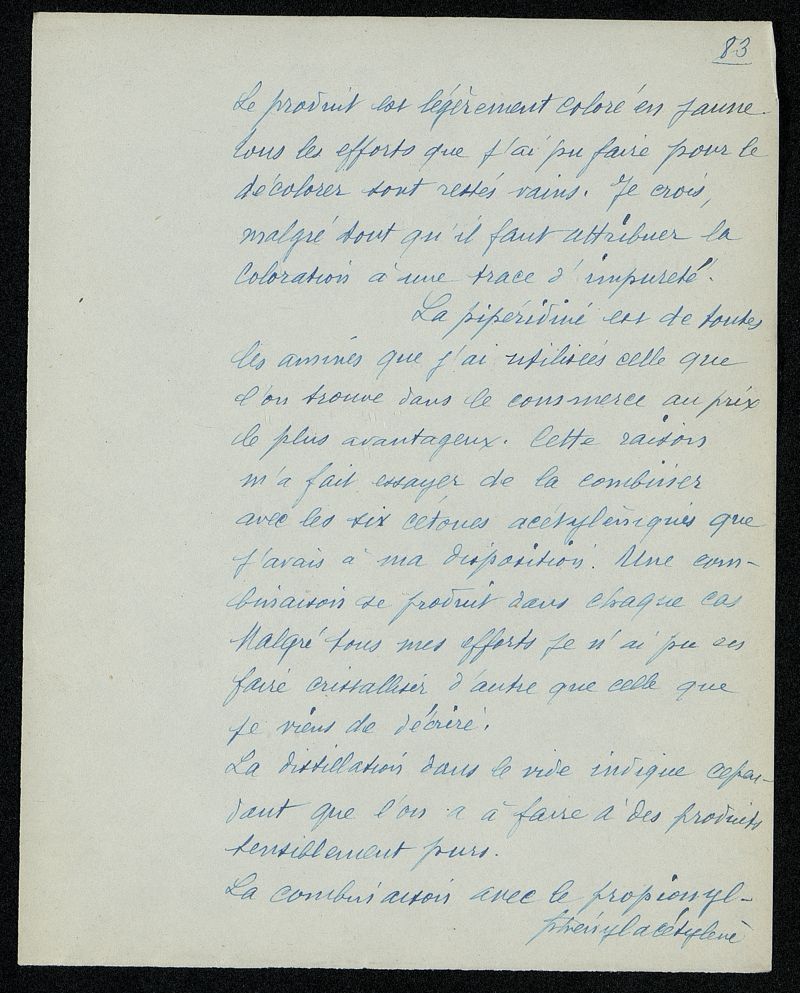 83
Le produit est légèrement coloré en jaune.
tous les efforts que j'ai pu faire pour le
décolorer sont restés vains. Je crois,
malgré tout qu'il faut attribuer la
coloration à une trace d'impureté.
La pipéridine est de toutes
les amines que j'ai utilisées celle que
l'on trouve dans le commerce au prix
le plus avantageux. Cette raison
m'a fait essayer de la combiner
avec les six cétones acétyléniques que
j'avais à ma disposition. Une com-
binaison se produit dans chaque cas
Malgré tous mes efforts je n'ai pu en
faire cristalliser d'autre que celle que
je viens de décrire.
La distillation dans le vide indique cepen-
dant que l'on a à faire à des produits
sensiblement purs.
La combinaison avec le propionyl-
phénylacétylène